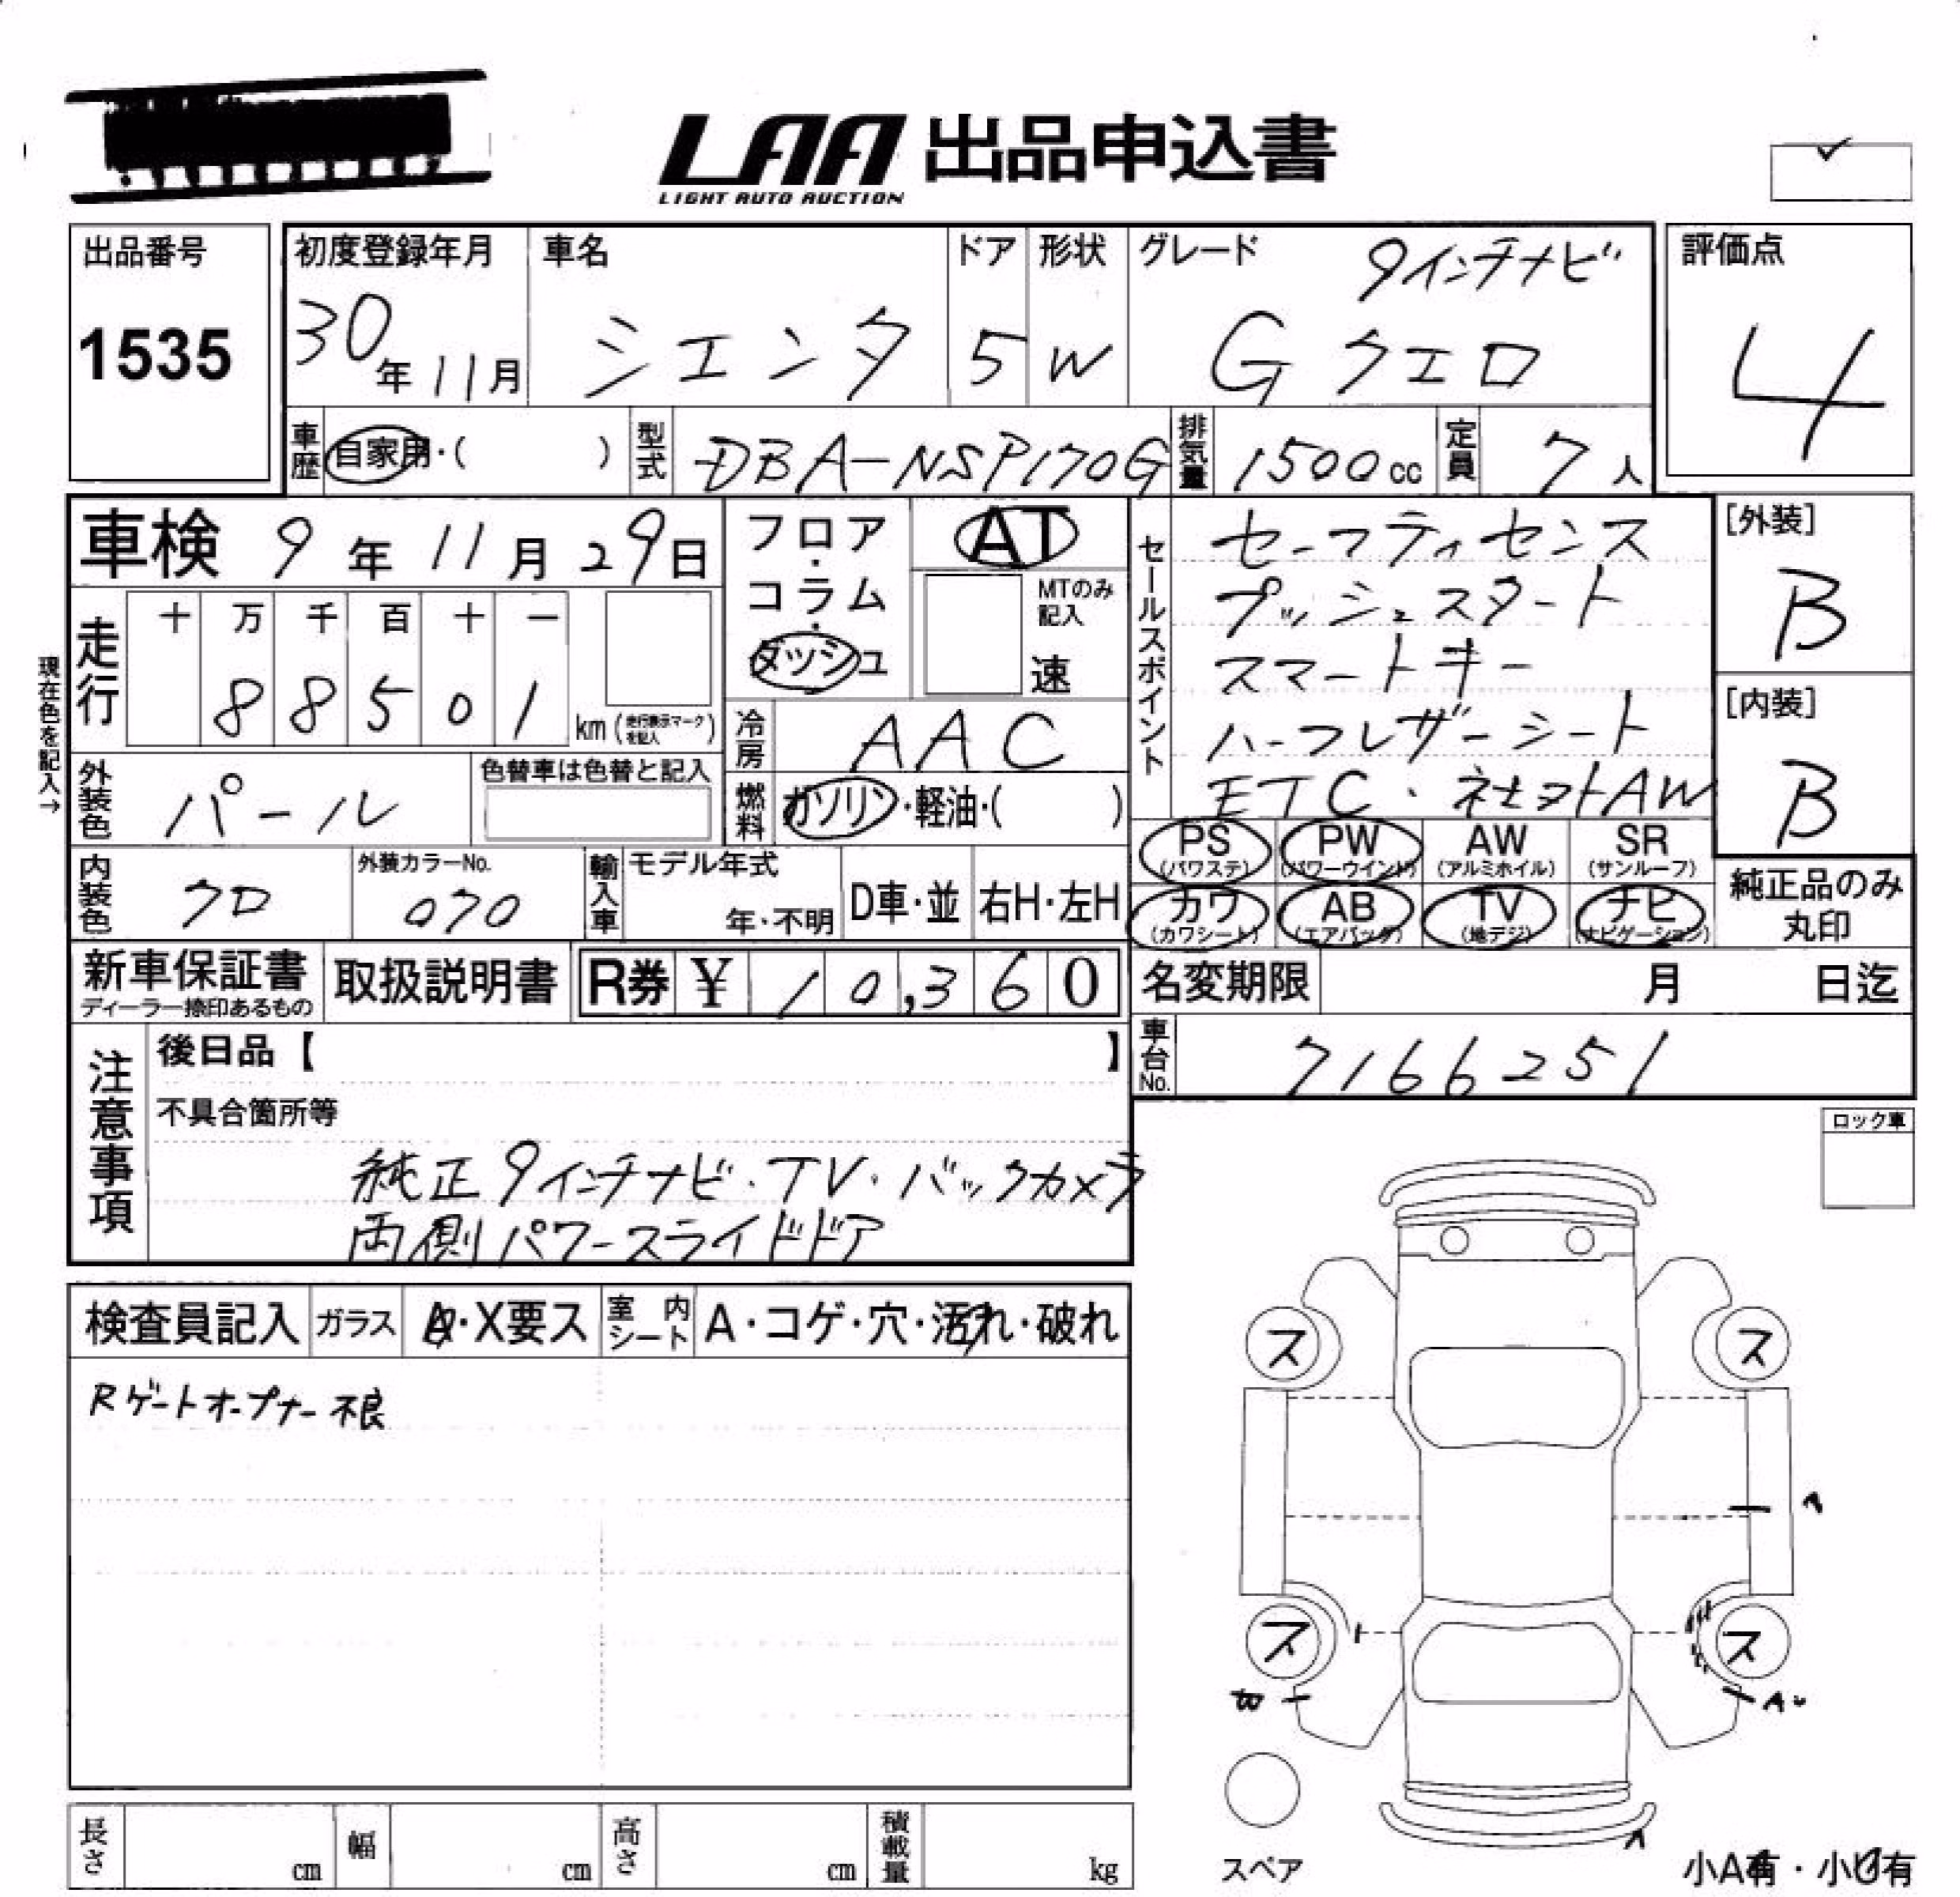 LAA 出品申込書
LIGHT AUTO AUCTION
出品番号
1535
初度登録年月
30年11月
車名
シエンタ
ドア
5
形状
W
グレード
9インチナビ
G クエロ
評価点
4
車歴 自家用・( )
型式 DBA-NSP170G
排気量 1500cc
定員 7人
車検 9年11月29日
フロア・コラム・ダッシュ
AT
MTのみ記入
速
セールスポイント
セーフティセンス
プッシュスタート
スマートキー
ハーフレザーシート
ETC・社ヨトAW
[外装]
B
[内装]
B
現在色を記入→
走行
十 万 千 百 十 一
8 8 5 0 1
km (走行表示マークを記入)
冷房 AAC
外装色 パール
色替車は色替と記入
燃料 ガソリン・軽油・( )
PS (パワステ)
PW (パワーウインド)
AW (アルミホイル)
SR (サンルーフ)
カワ (カワシート)
AB (エアバッグ)
TV (地デジ)
ナビ (ナビゲーション)
純正品のみ丸印
内装色 クロ
外装カラーNo.
070
輸入車
モデル年式
年・不明
D車・並
右H・左H
新車保証書
ディーラー捺印あるもの
取扱説明書
R券 ¥ 10,360
名変期限 月 日迄
車台No. 7166251
注意事項
後日品【 】
不具合箇所等
純正9インチナビ・TV・バックカメラ
両側パワースライドドア
ロック車
検査員記入
ガラス
・X要ス
室内シート
A・コゲ・穴・汚れ・破れ
Rゲートオープナー不良
ス
ス
ス
ス
W
A
スペア
小A有・小U有
長さ cm
幅 cm
高さ cm
積載量 kg